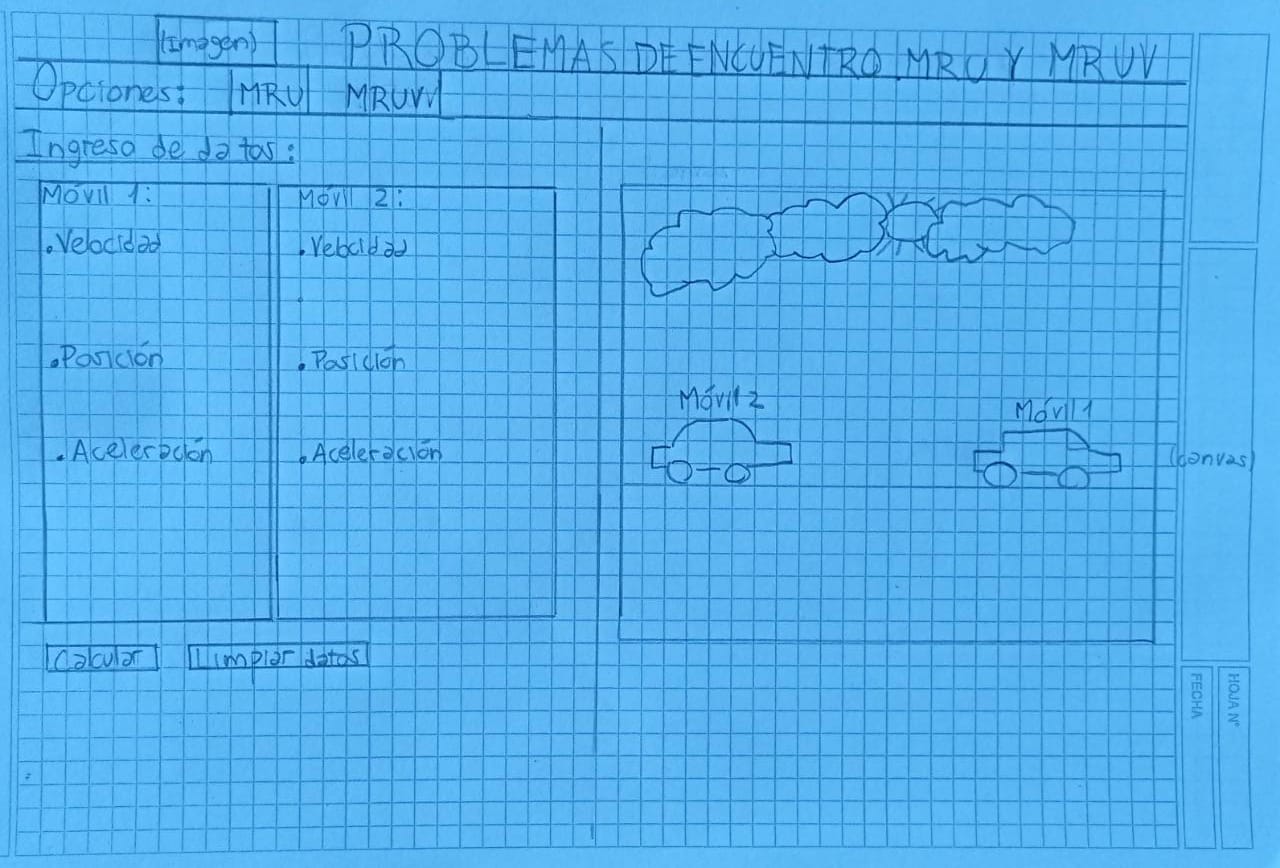 (Imagen) PROBLEMAS DE ENCUENTRO MRU Y MRUV
Opciones: MRU MRUV
Ingreso de datos:
Móvil 1:
.Velocidad
.Posición
.Aceleración
Móvil 2:
.Velocidad
.Posición
.Aceleración
Calcular Limpiar datos
Móvil 2
Móvil 1
(canvas)
HOJA Nº
FECHA